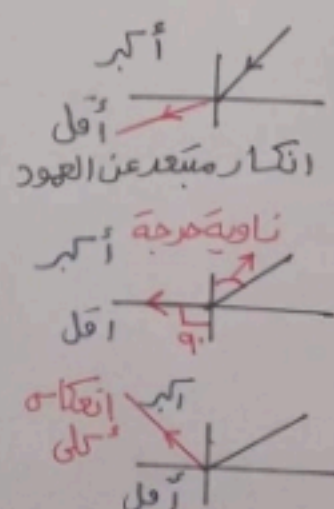 أكبر
أقل
انكسار مبتعد عن العمود
زاوية حرجة
أكبر
اقل
90
اكبر
إنعكاس
كلى
أقل